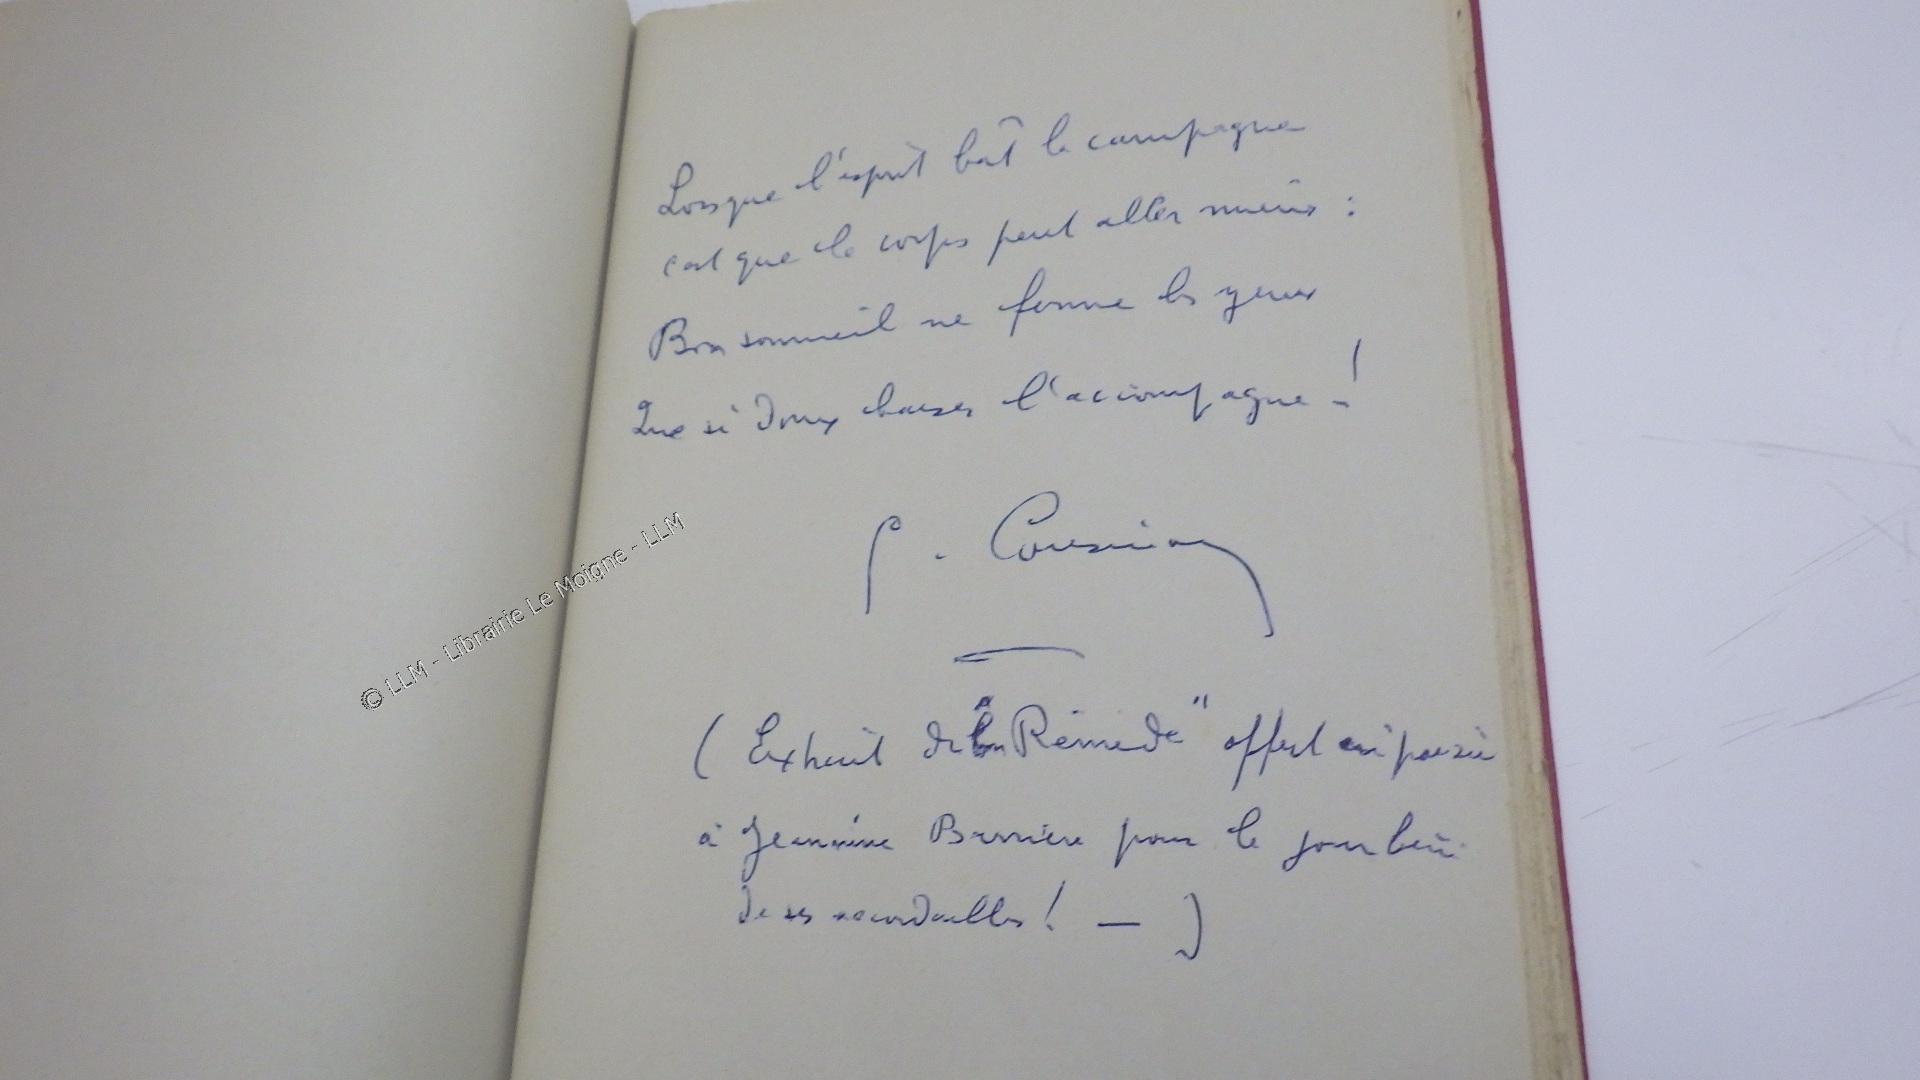 Lorsque l'esprit bat la campagne
c'est que le corps peut aller mieux :
Bon sommeil ne ferme les yeux
Que si doux baiser l'accompagne - !
Extrait de Remède" offert
à Jeannine pour le jour béni
de ses accordailles ! — )
© LLM - Librairie Le Moigne - LLM